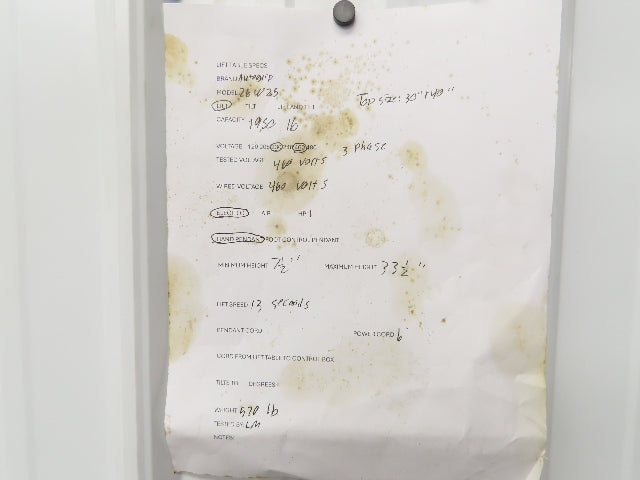 LIFT TABLE SPECS
BRAND Autogrip
MODEL
LIFT TILT LIFT AND TILT Top size: 30" x 40"
CAPACITY lb
VOLTAGE 3 phase
TESTED VOLTAGE 460 volts
WIRED VOLTAGE 460 volts
ELECTRIC AIR HP 1
HAND PENDANT FOOT CONTROL PENDANT
MINIMUM HEIGHT 7 1/2" MAXIMUM HEIGHT 33 1/2"
LIFT SPEED 12 seconds
PENDANT CORD POWER CORD 6
CORD FROM LIFT TABLE TO CONTROL BOX
TILTS TO DEGREES
WEIGHT 570 lb
TESTED BY LM
NOTES: